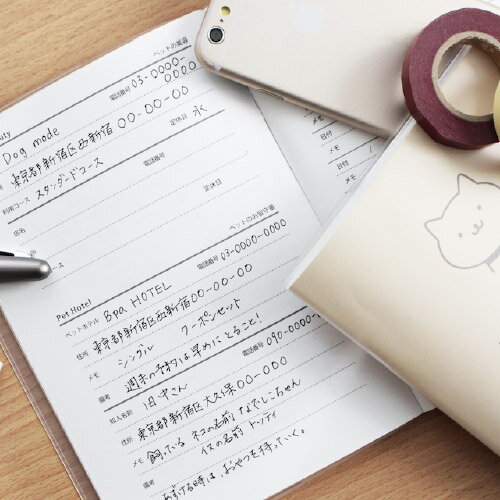 ペットの美容
uty
Dog mode
電話番号 03-0000-0000
住所 東京都新宿区西新宿 00-00-00
利用コース スタンダードコース
定休日 水
店名
電話番号
定休日
ース
Pet Hotel
ペットのお留守番
ペットホテル Bpa HOTEL
電話番号 03-0000-0000
住所 東京都新宿区西新宿 00-00-00
メモ シングル クーポンセット
備考 週末の予約は早めにとること!
知人名前 田中さん
電話番号 090-0000-
住所 東京都新宿区大久保 00-000
メモ 飼っている ネコの名前 なでしこちゃん
イヌの名前 トッティ
備考 あずける時はおやつを持っていく。
メモ
日付
メモ
日付
メモ